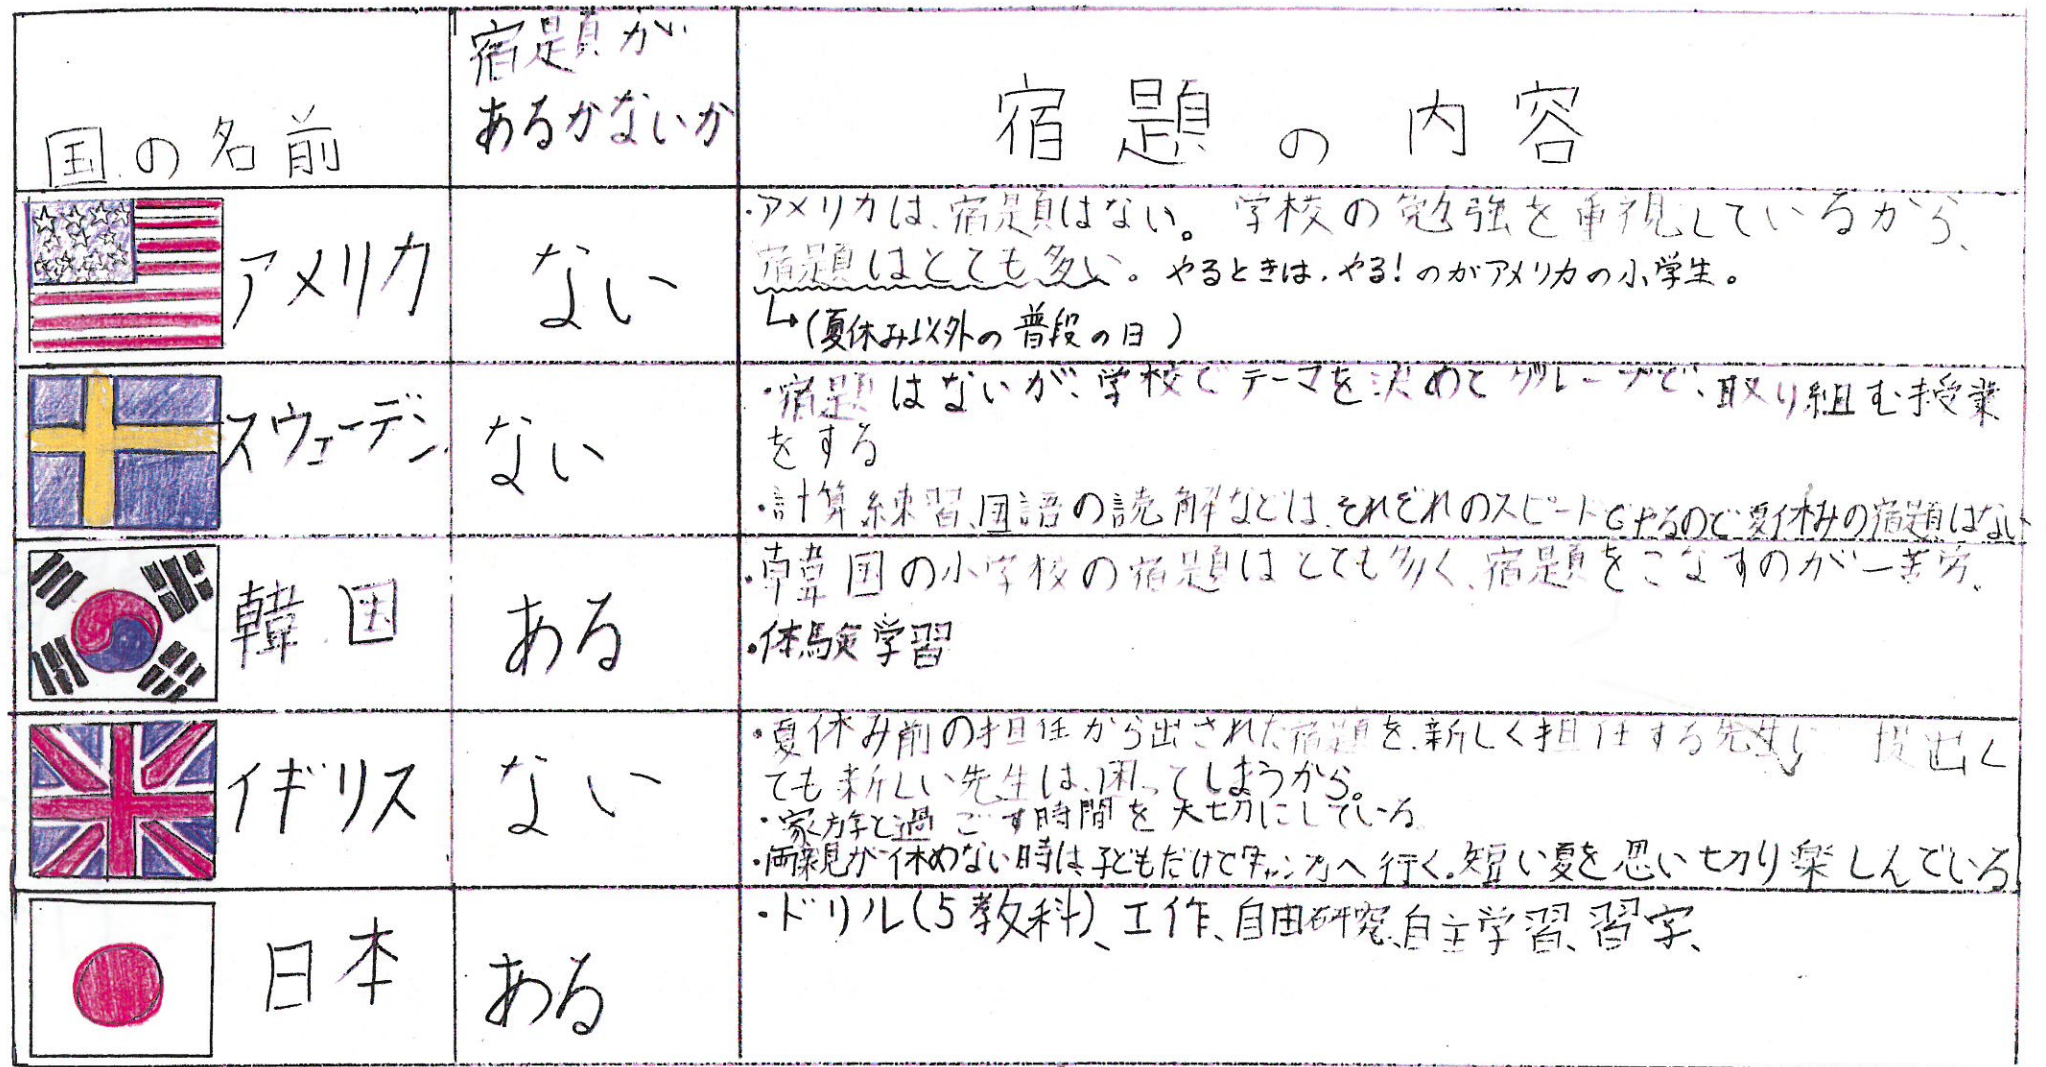 国の名前
宿題が
あるかないか
宿題の内容
アメリカ
ない
・アメリカは、宿題はない。学校の勉強を重視しているから、
宿題はとても多い。やるときは、やる!のがアメリカの小学生。
↳(夏休み以外の普段の日)
スウェーデン
ない
・宿題はないが、学校でテーマを決めてグループで、取り組む授業
をする
・計算練習、国語の読解などは、それぞれのスピードでやるので夏休みの宿題はない
韓国
ある
・韓国の小学校の宿題はとても多く、宿題をこなすのが一苦労。
・体験学習
イギリス
ない
・夏休み前の担任から出された宿題を、新しく担任する先生に 提出し
ても新しい先生は、困ってしまうから。
・家族と過ごす時間を大切にしている
・両親が休めない時は、子どもだけでキャンプへ行く。短い夏を思い切り楽しんでいる
日本
ある
・ドリル(5教科)、工作、自由研究、自主学習、習字、